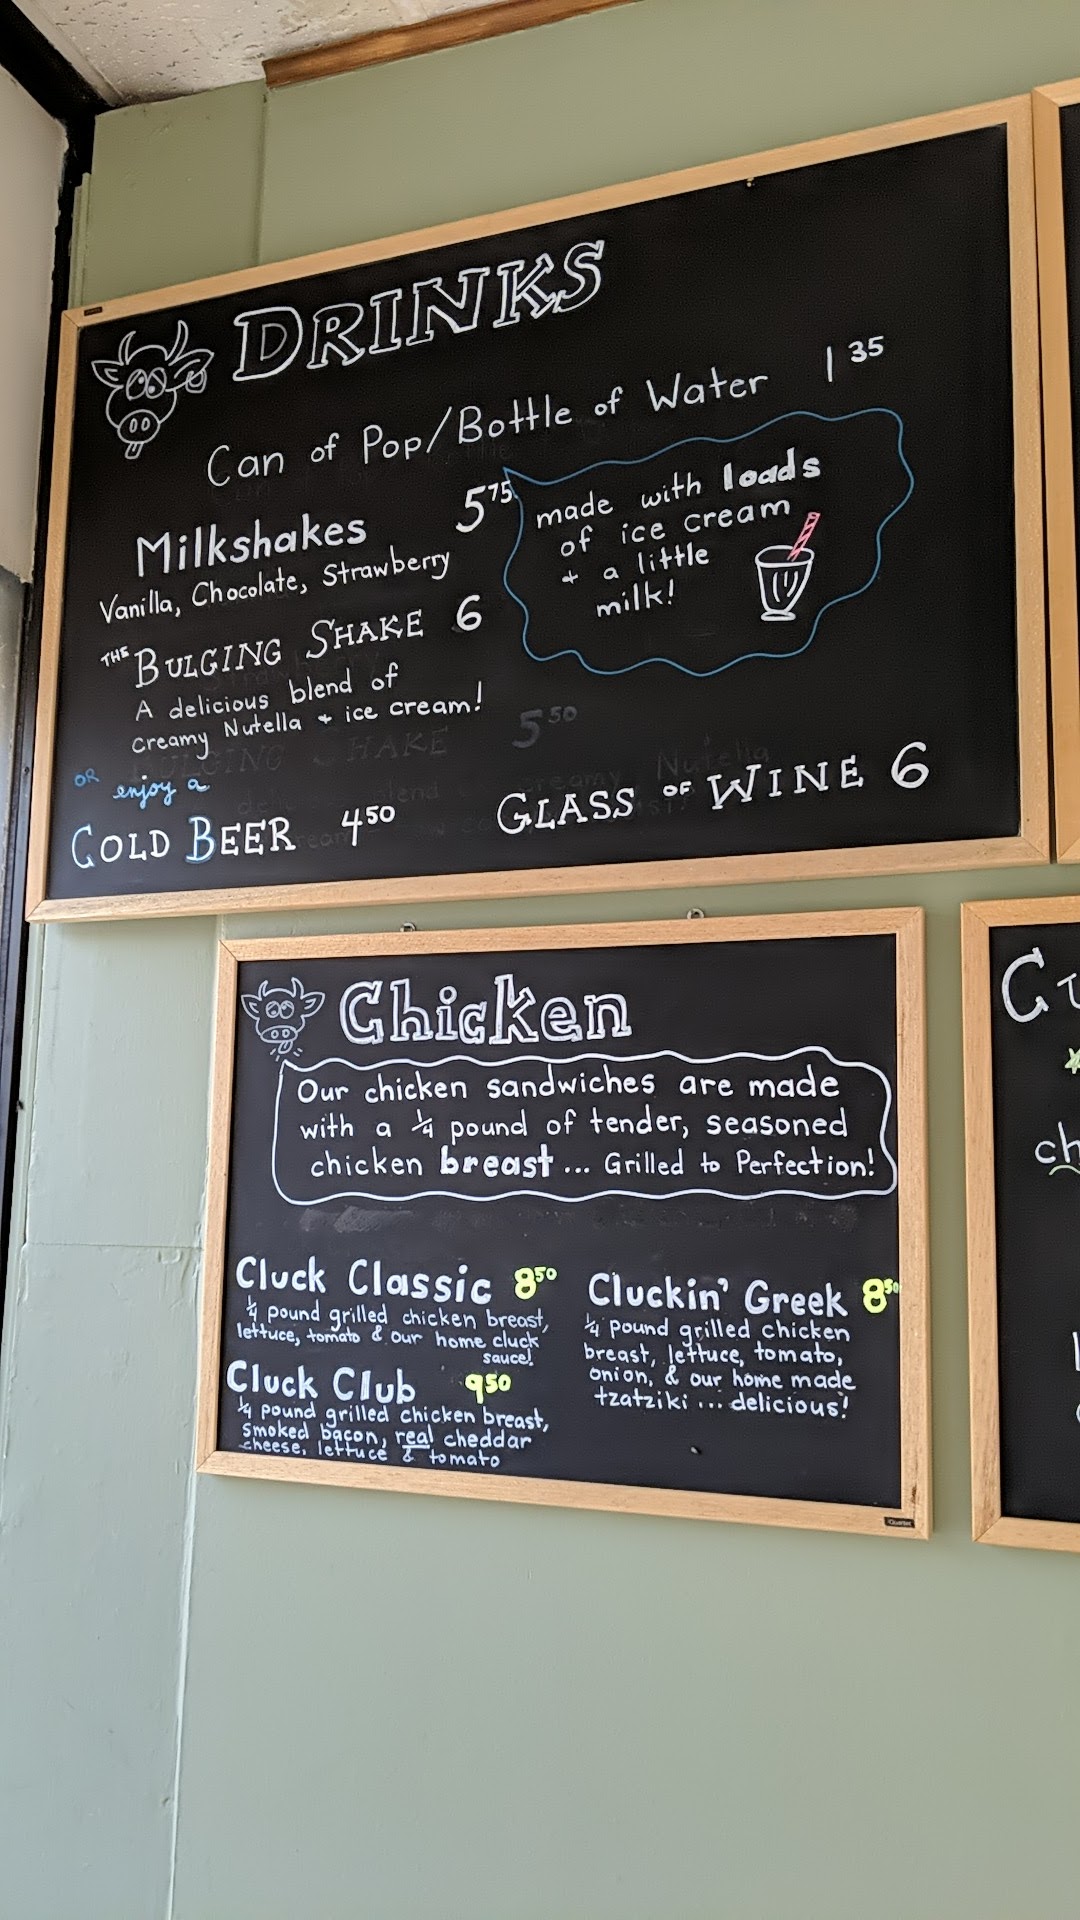 DRINKS
Can of Pop/Bottle of Water 1 35
Milkshakes 5 75
Vanilla, Chocolate, Strawberry
made with loads
of ice cream
+ a little
milk!
THE BULGING SHAKE 6
A delicious blend of
creamy Nutella + ice cream!
5 50
OR enjoy a
COLD BEER 4 50
GLASS OF WINE 6
Chicken
Our chicken sandwiches are made
with a 1/4 pound of tender, seasoned
chicken breast... Grilled to Perfection!
Cluck Classic 8 50
1/4 pound grilled chicken breast,
lettuce, tomato & our home cluck
sauce!
Cluck Club 9 50
1/4 pound grilled chicken breast,
smoked bacon, real cheddar
cheese, lettuce & tomato
Cluckin' Greek 8 50
1/4 pound grilled chicken
breast, lettuce, tomato,
onion, & our home made
tzatziki ... delicious!
Quartet